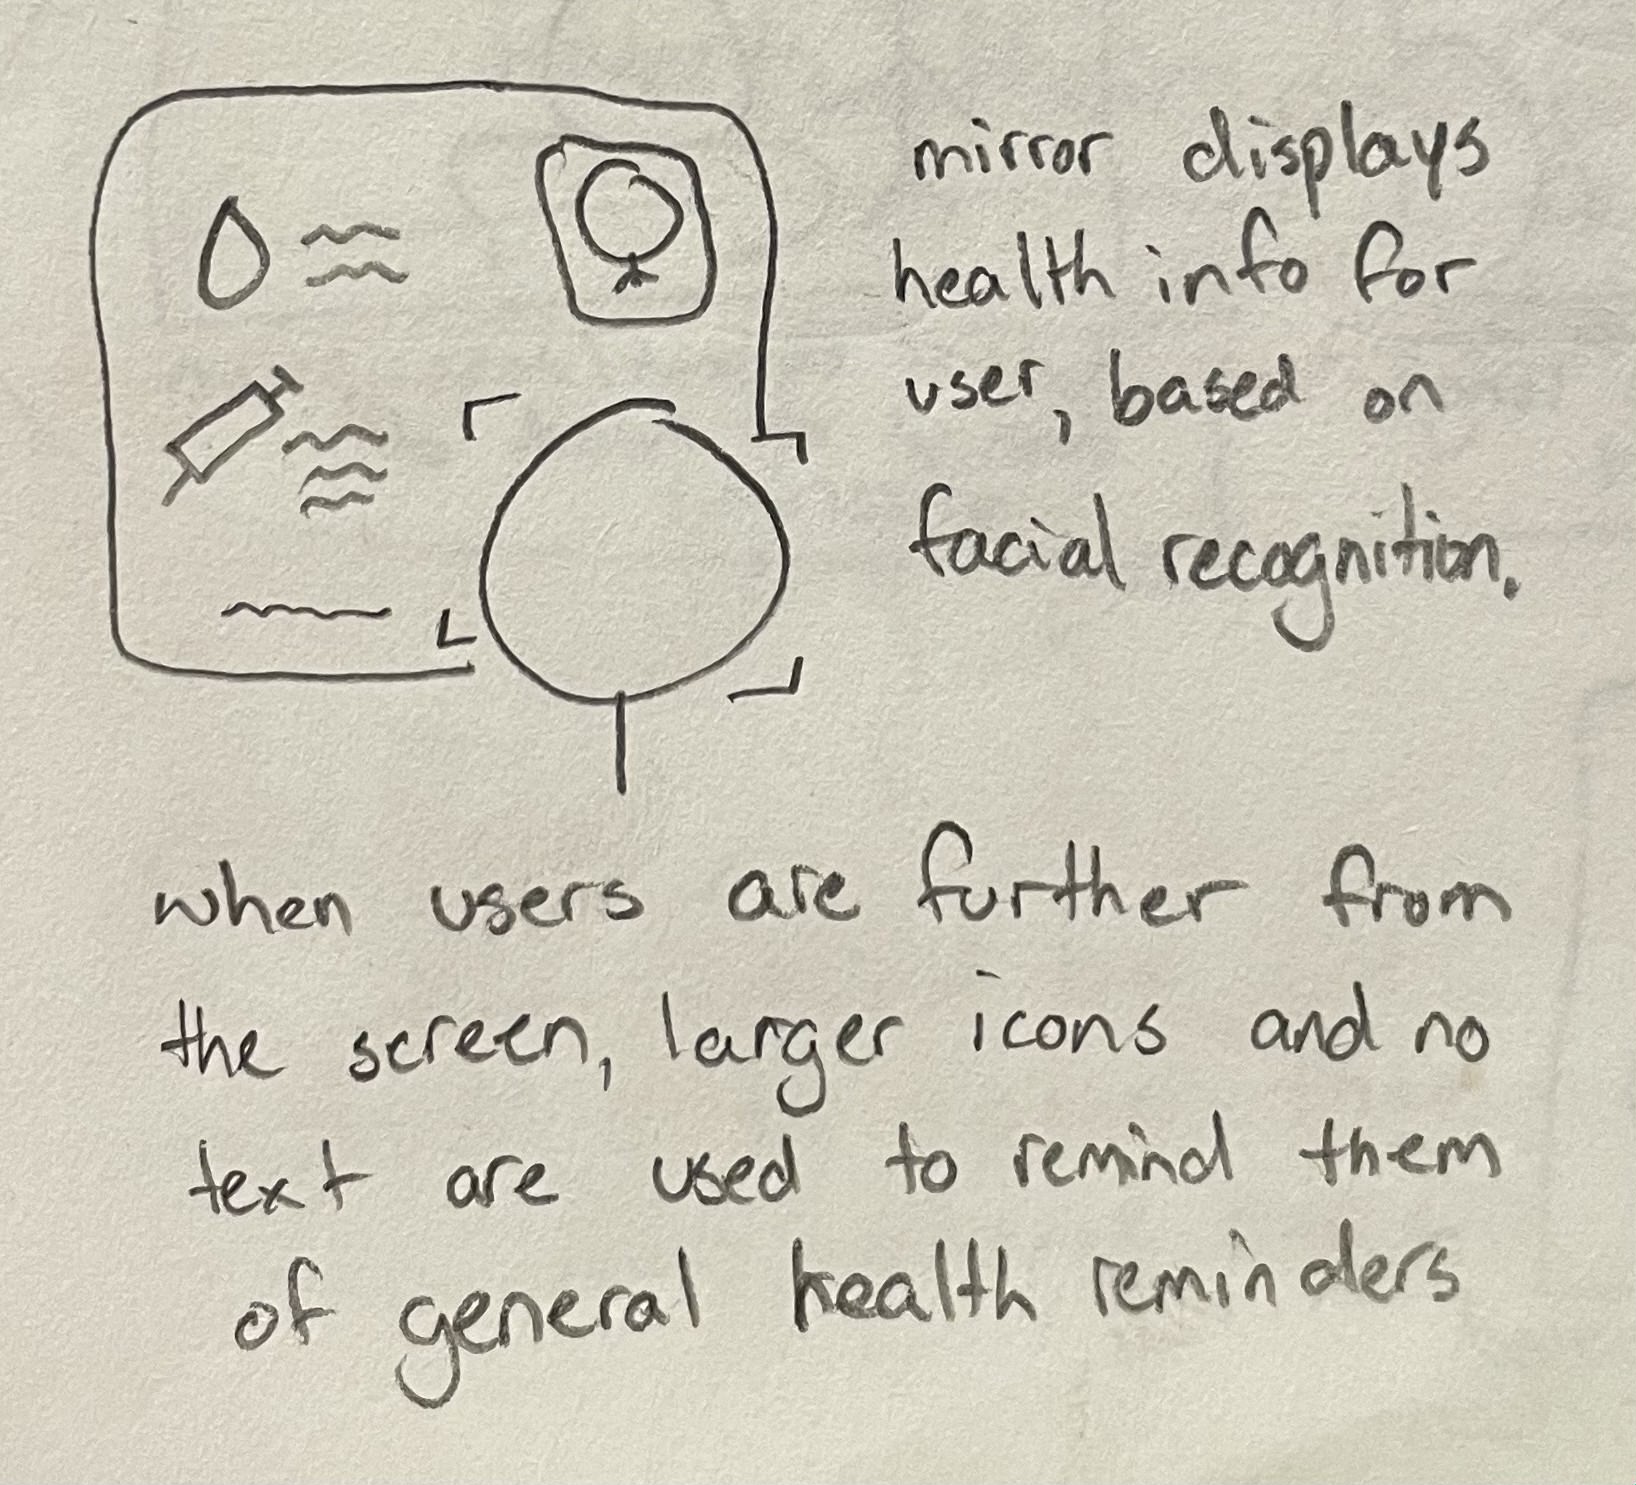 mirror displays
health info for
user, based on
facial recognition.
when users are further from
the screen, larger icons and no
text are used to remind them
of general health reminders